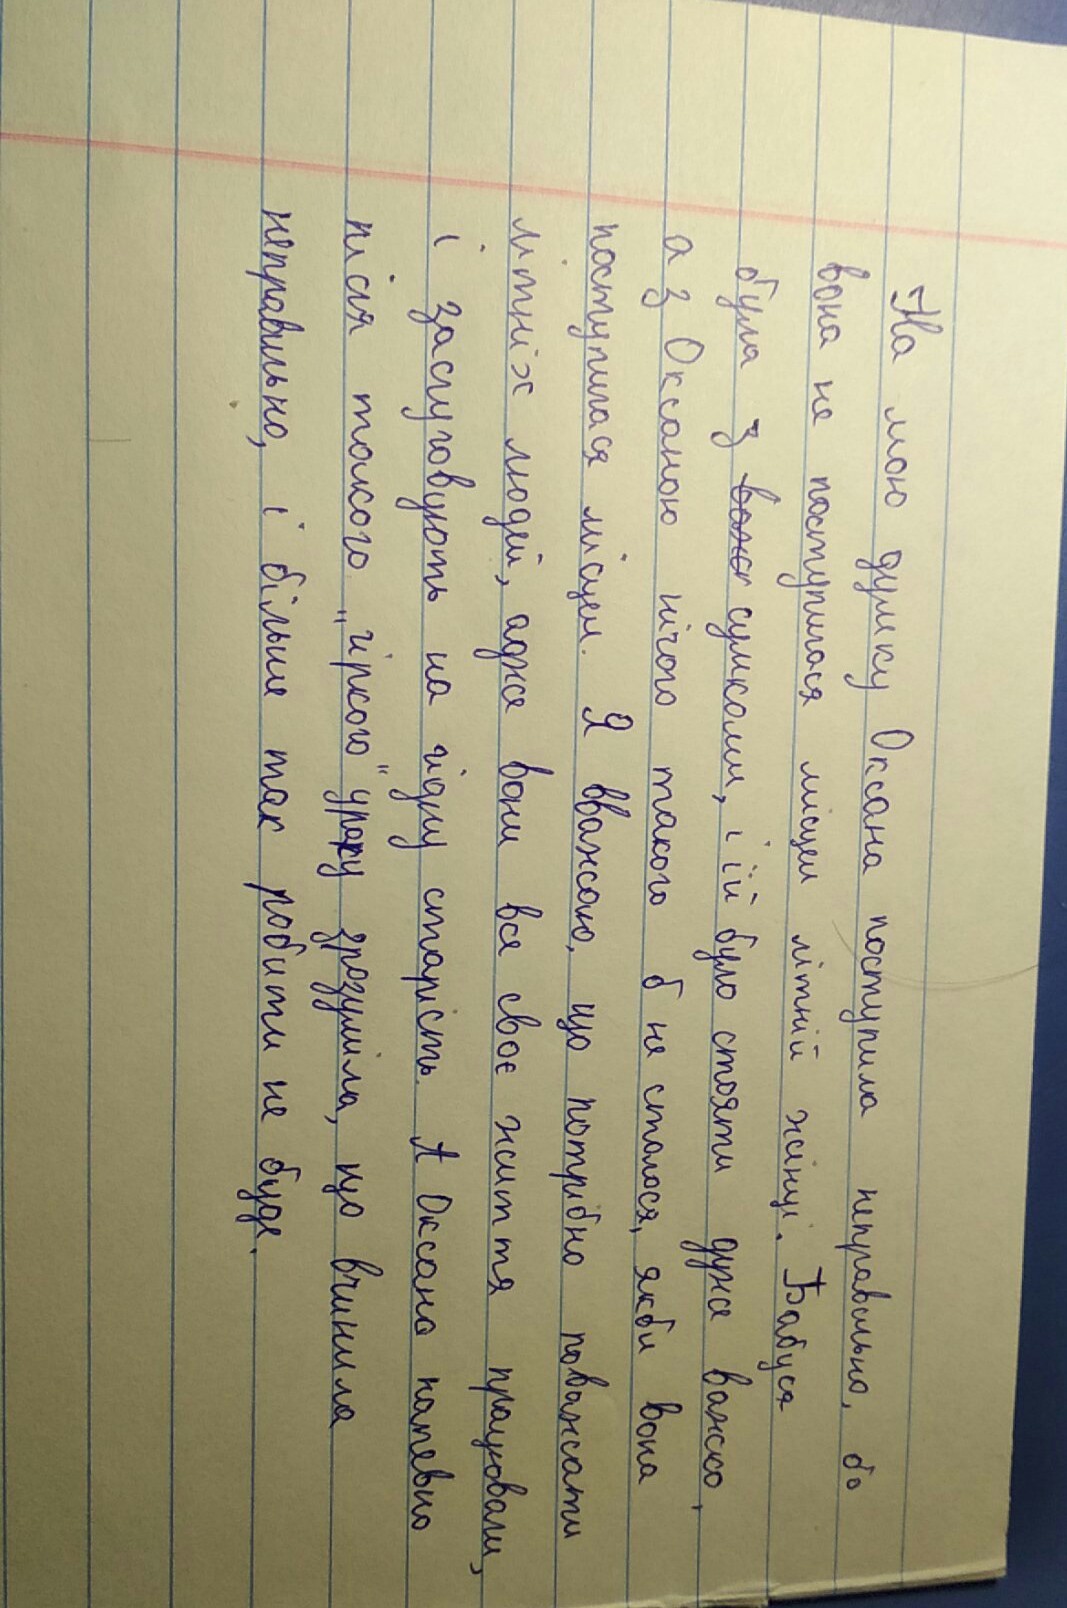 На мою думку Оксана поступила неправильно, бо
вона не поступилася місцем літній жінці. Бабуся
була з сумками, і їй було стояти дуже важко,
а з Оксаною нічого такого б не сталося, якби вона
поступилася місцем. Я вважаю, що потрібно поважати
літніх людей, адже вони все своє життя працювали,
і заслуговують на гідну старість. А Оксана напевно
після такого "гіркого" уроку зрозуміла, що вчинила
неправильно, і більше так робити не буде.